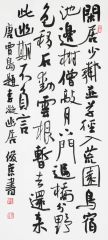 閑居少鄰並草徑入荒園鳥宿
池邊樹僧敲月下門過橋分野
色移石動雲根暫去還來
此幽期不負言
唐賈島題李凝幽居 書